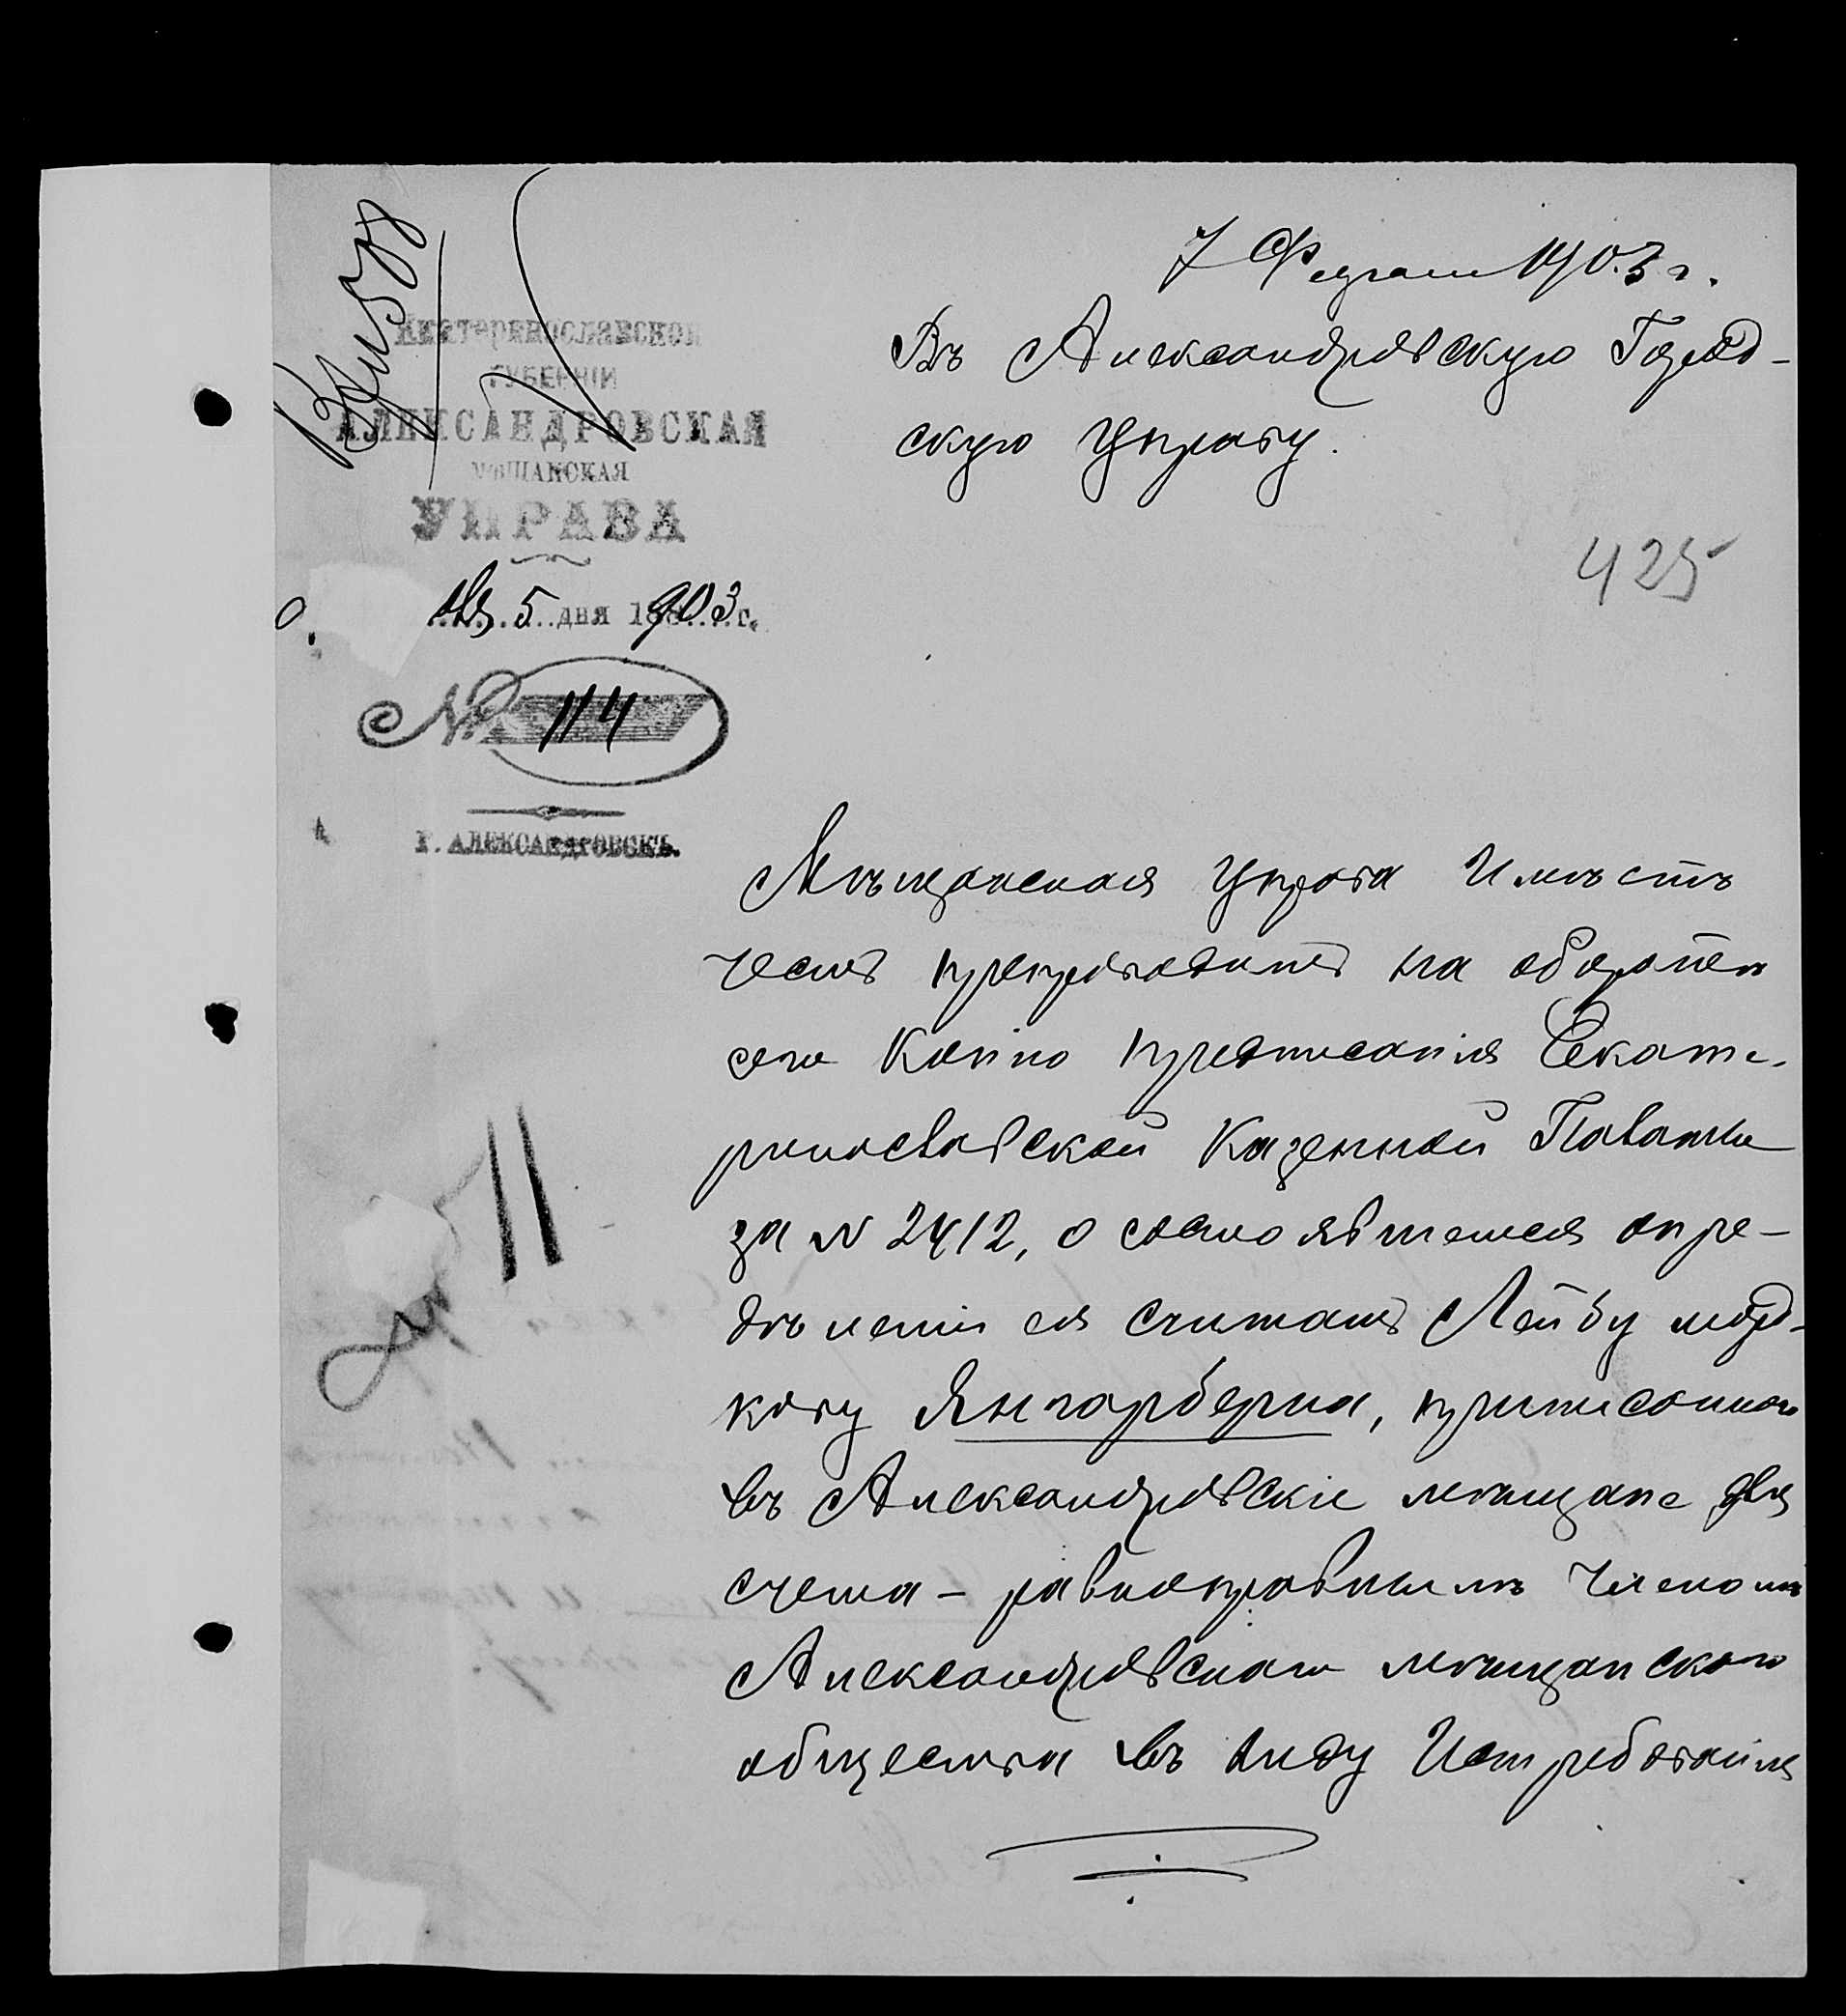 7 Февраля 1903 г.
Въ Александровскую Город-
скую Управу.
Екатеринославской
ГУБЕРНІИ
АЛЕКСАНДРОВСКАЯ
МѢЩАНСКАЯ
УПРАВА
5 дня 1903 г.
425
№ 114
Г. АЛЕКСАНДРОВСКЪ.
Мѣщанская Управа Имѣетъ
честь препроводить на оборотѣ
сего Копію предписанія Екате-
ринославской Казенной Палаты
за № 2412, о состоявшемся опре-
дѣленіи ея считать Лейбу Морд-
кову Янгарберга, приписаннаго
въ Александровскіе мѣщане для
счета - равноправнымъ членомъ
Александровскаго мѣщанскаго
общества въ виду Истребованія